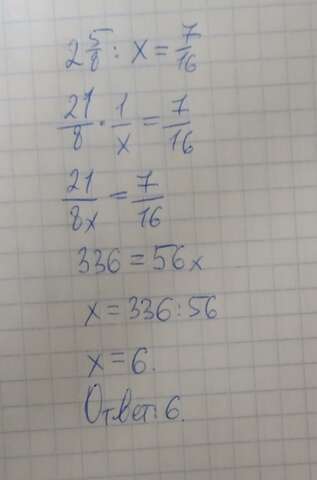 2 5/8 : x = 7/16
21/8 · 1/x = 7/16
21/8x = 7/16
336 = 56x
x = 336 : 56
x = 6.
Ответ: 6.